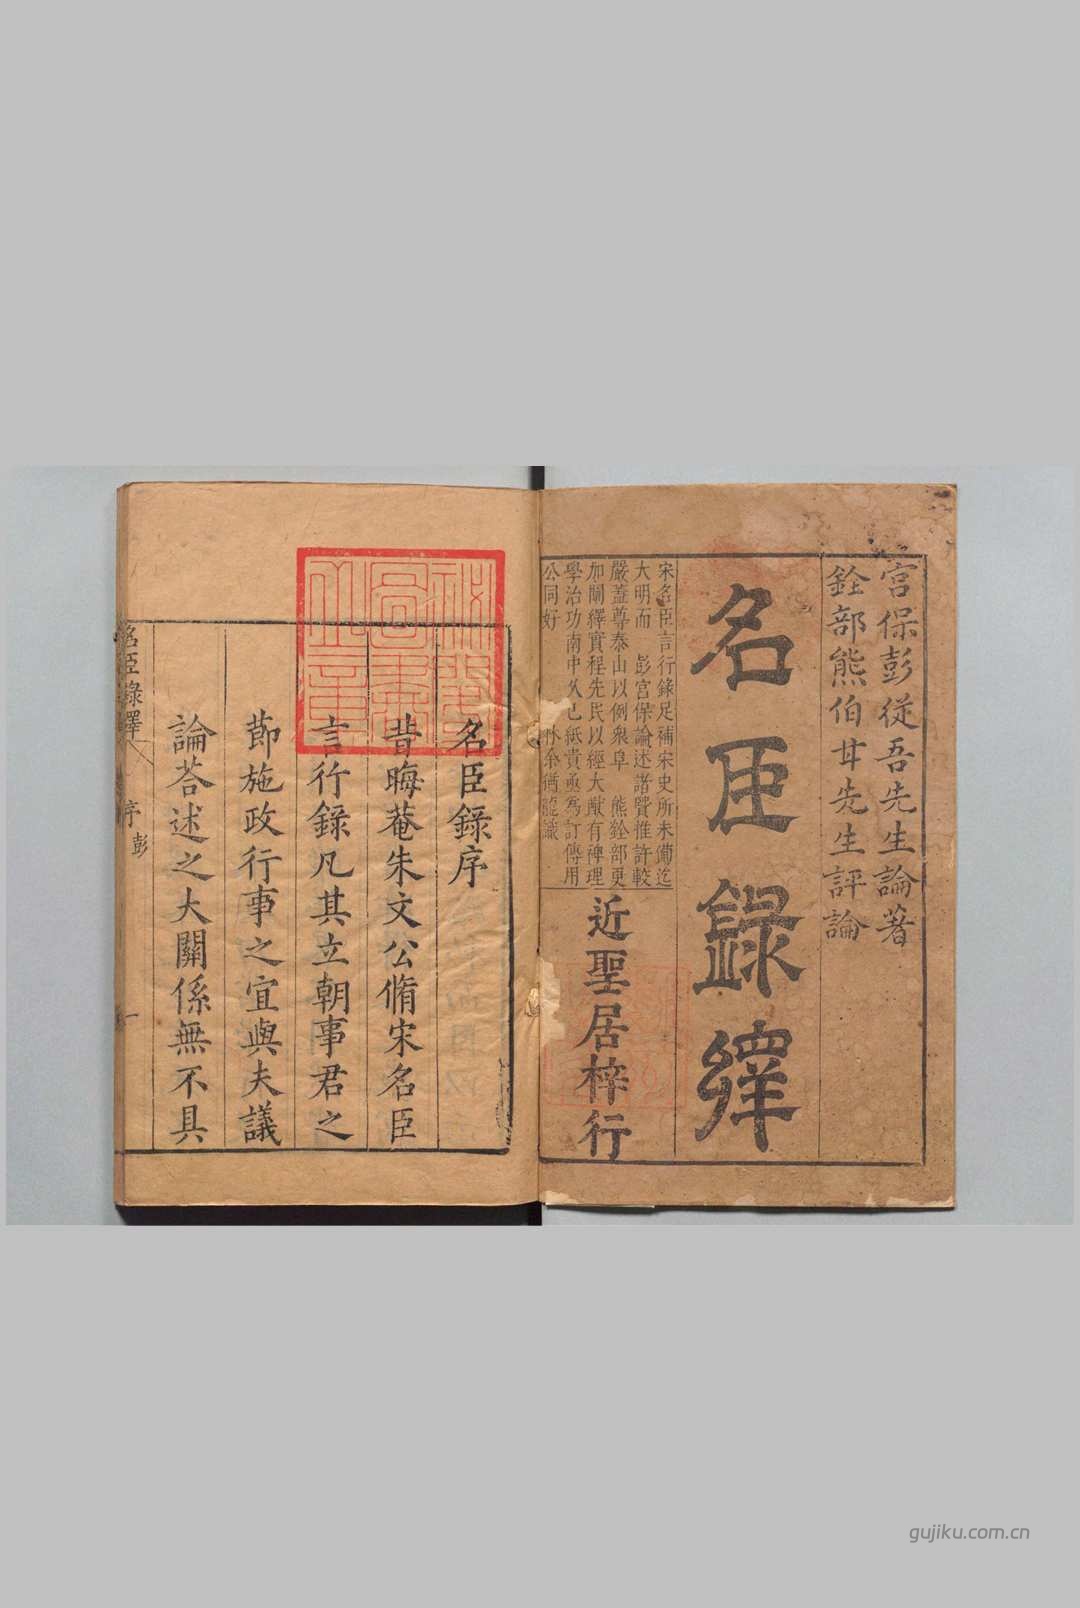 宮保彭從吾先生論著
銓部熊伯甘先生評論
名臣錄繹
宋名臣言行錄足補宋史所未備迄
大明而　彭宮保論述諸賢推許較
嚴蓋尊泰山以例衆阜　熊銓部更
加闡繹實程先民以經大猷有裨理
學治功南中久已紙貴亟為訂傳用
公同好　　龍識
近聖居梓行
名臣錄序
昔晦菴朱文公脩宋名臣
言行錄凡其立朝事君之
節施政行事之宜與夫議
論荅述之大關係無不具
名臣錄繹
序
彭
一
gujiku.com.cn